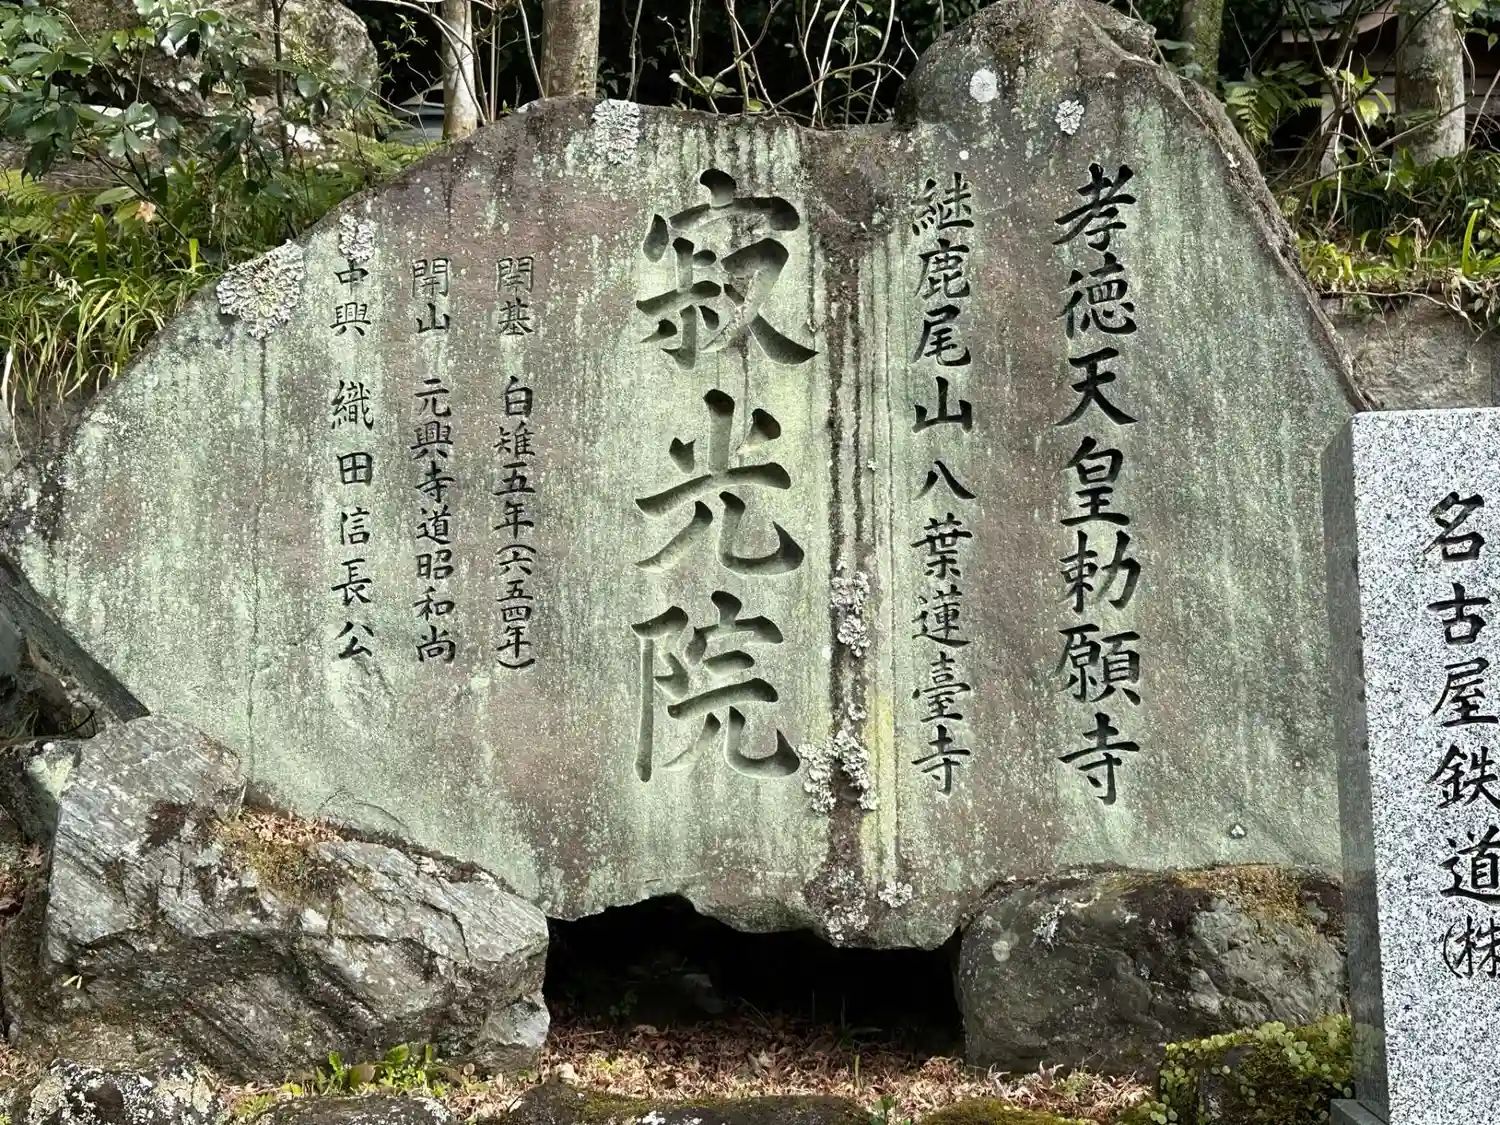 孝徳天皇勅願寺
継鹿尾山八葉蓮臺寺
寂光院
開基 白雉五年(六五四年)
開山 元興寺道昭和尚
中興 織田信長公
名古屋鉄道(株